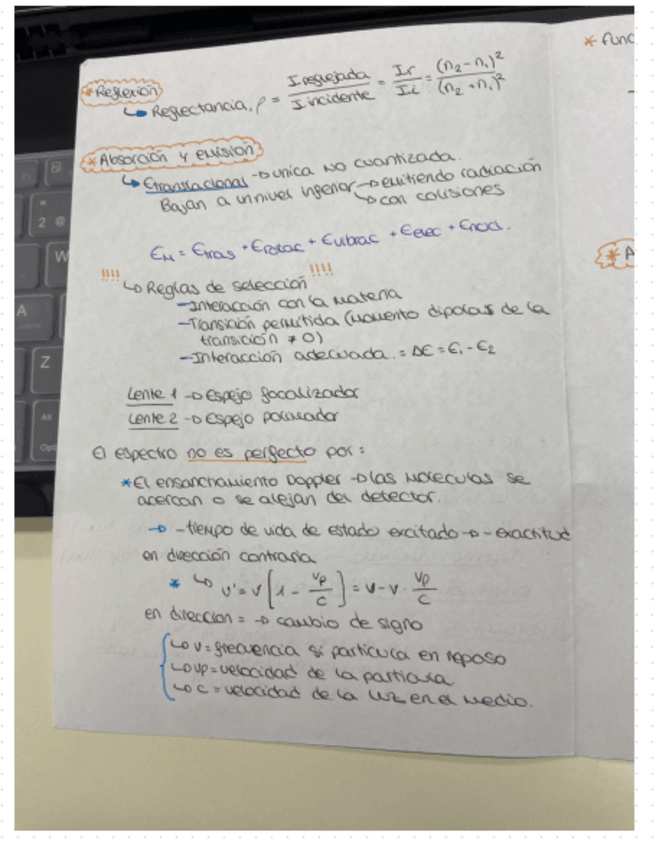 * Reflexión
↳ Reflectancia, ρ = I reflejada / I incidente = Ir / Ii = (n2 - n1)² / (n2 + n1)²
* func
* Absorción y emisión
↳ Etranslacional → unica no cuantizada.
Bajan a un nivel inferior → emitiendo radiación
↳ con colisiones
EM = Etras + Erotac + Evibrac + Eelec + Enucl.
* A
!!!! !!!!
↳ Reglas de selección
- Interacción con la materia
- Transición permitida (momento dipolar de la
transición ≠ 0)
- Interacción adecuada. = ΔE = E1 - E2
Lente 1 → Espejo focalizador
Lente 2 → Espejo
El espectro no es perfecto por:
* El ensanchamiento Doppler → las moleculas se
acercan o se alejan del detector.
→ - tiempo de vida de estado excitado → - exactitud
en dirección contraria
* ↳ v' = v [1 - vp / c] = v - v · vp / c
en direccion = → cambio de signo
↳ v = frecuencia si particula en reposo
↳ vp = velocidad de la particula
↳ c = velocidad de la luz en el medio.
W
A
Z
2 @
Alt